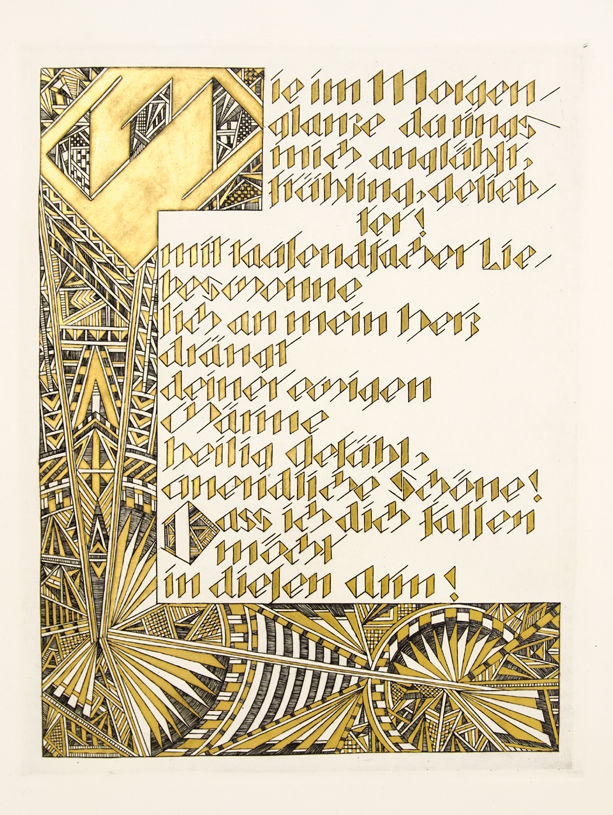 Wie im Morgen-
glanze du rings
mich anglühst,
frühling, gelieb-
ter!
mit tausendfacher Lie-
beswonne
sich an mein herz
drängt
deiner ewigen
Wärme
heilig gefühl,
unendliche Schöne!
Dass ich dich fassen
möcht
in diesen arm!